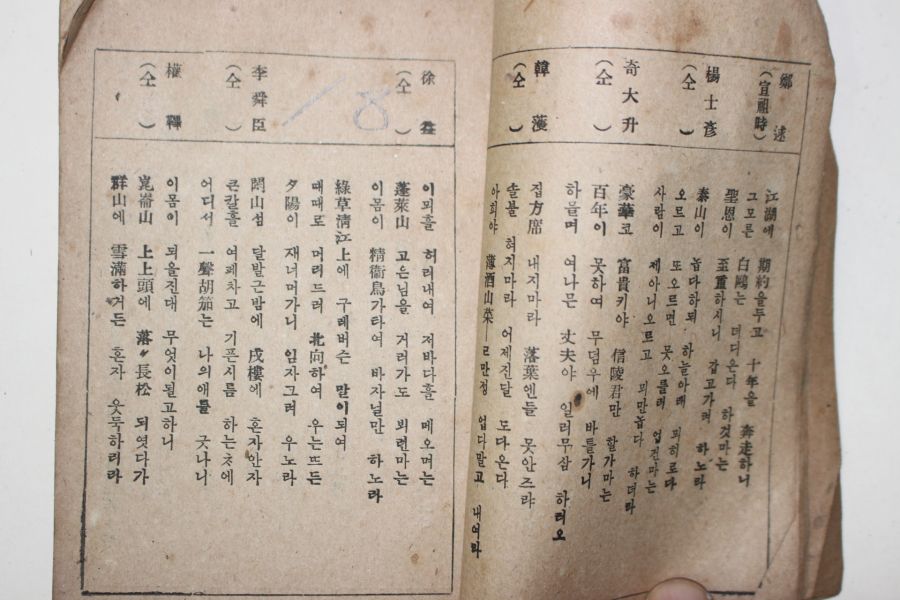 鄭逑
(宣祖時)
江湖에 期約을두고 十年을 奔走하니
그모른 白鷗는 더듸온다 하것마는
聖恩이 至重하시니 갑고가려 하노라
楊士彦
(仝)
泰山이 놉다하되 하늘아래 뫼히로다
오르고 또오르면 못오를리 업건마는
사람이 제아니오르고 뫼만놉다 하더라
奇大升
(仝)
豪華코 富貴키야 信陵君만 할가마는
百年이 못하여 무덤우에 바틀가니
하믈며 여나믄 丈夫야 일러무삼 하리오
韓濩
(仝)
집方席 내지마라 落葉엔들 못안즈랴
솔불 혀지마라 어제진달 도다온다
아희야 薄酒山菜ㅡㄹ만정 업다말고 내여라
徐益
(仝)
이뫼흘 허러내여 저바다흘 메오며는
蓬萊山 고은님을 거러가도 뵈련마는
이몸이 精衛鳥가타여 바자닐만 하노라
綠草淸江上에 구레버슨 말이되여
때때로 머리드러 北向하여 우는뜨든
夕陽이 재너머가니 임자그려 우노라
李舜臣
(仝)
閑山섬 달발근밤에 戍樓에 혼자안자
큰칼흘 여페차고 기픈시름 하는츳에
어디서 一聲胡笳는 나의애를 긋나니
權
(仝)
이몸이 되올진대 무엇이될고하니
崑崙山 上上頭에 落〃長松 되엿다가
群山에 雪滿하거든 혼자 웃둑하리라